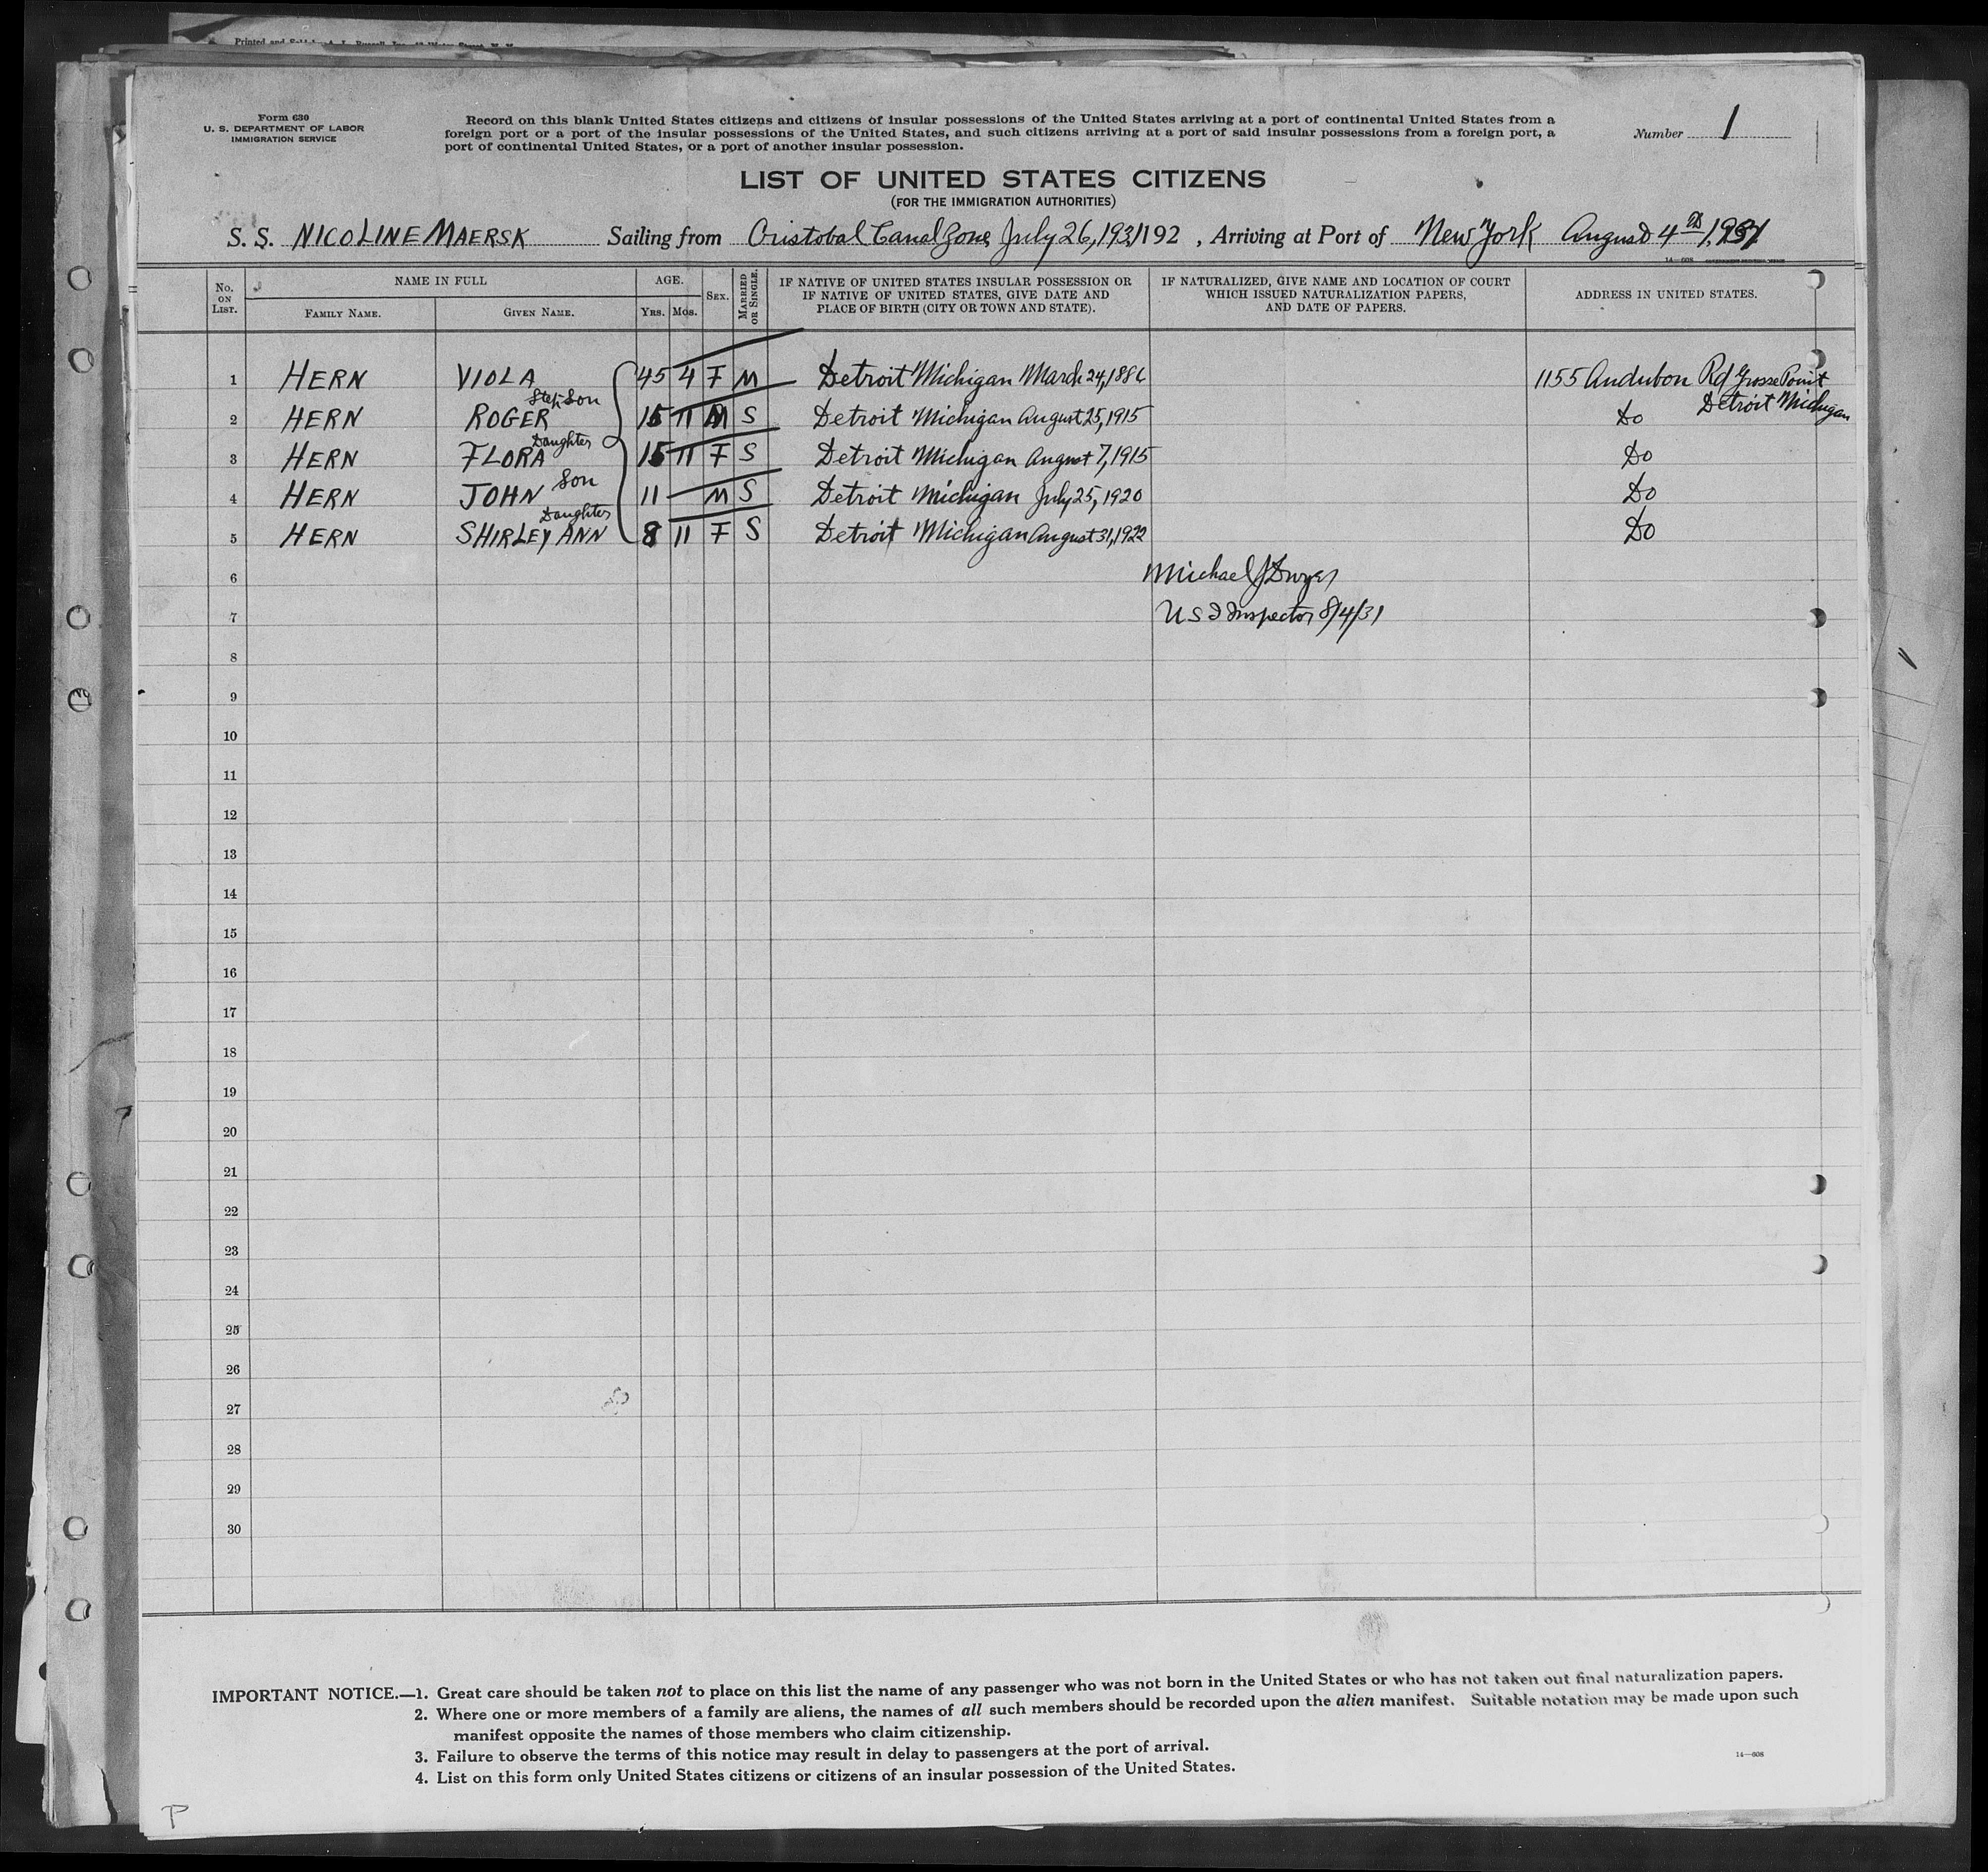 Form 630
U. S. DEPARTMENT OF LABOR
IMMIGRATION SERVICE
Record on this blank United States citizens and citizens of insular possessions of the United States arriving at a port of continental United States from a
foreign port or a port of the insular possessions of the United States, and such citizens arriving at a port of said insular possessions from a foreign port, a
port of continental United States, or a port of another insular possession.
Number 1
LIST OF UNITED STATES CITIZENS
(FOR THE IMMIGRATION AUTHORITIES)
S. S. NICOLINE MAERSK Sailing from Cristobal Canal Zone July 26, 1931 192 , Arriving at Port of New York August 4th, 1931
14-608
No. ON LIST. NAME IN FULL AGE. SEX. MARRIED OR SINGLE. IF NATIVE OF UNITED STATES INSULAR POSSESSION OR IF NATIVE OF UNITED STATES, GIVE DATE AND PLACE OF BIRTH (CITY OR TOWN AND STATE). IF NATURALIZED, GIVE NAME AND LOCATION OF COURT WHICH ISSUED NATURALIZATION PAPERS, AND DATE OF PAPERS. ADDRESS IN UNITED STATES.
FAMILY NAME. GIVEN NAME. YRS. MOS.
1 HERN VIOLA 45 4 F M Detroit Michigan March 24, 1886 1155 Audubon Rd Grosse Point
Detroit Michigan
2 HERN ROGER Step Son 15 11 M S Detroit Michigan August 25, 1915 Do
3 HERN FLORA Daughter 15 11 F S Detroit Michigan August 7, 1915 Do
4 HERN JOHN Son 11 M S Detroit Michigan July 25, 1920 Do
5 HERN SHIRLEY ANN Daughter 8 11 F S Detroit Michigan August 31, 1922 Do
6 Michael J Dwyer
7 U S I Inspector 8/4/31
8
9
10
11
12
13
14
15
16
17
18
19
20
21
22
23
24
25
26
27
28
29
30
IMPORTANT NOTICE.—1. Great care should be taken not to place on this list the name of any passenger who was not born in the United States or who has not taken out final naturalization papers.
2. Where one or more members of a family are aliens, the names of all such members should be recorded upon the alien manifest. Suitable notation may be made upon such
manifest opposite the names of those members who claim citizenship.
3. Failure to observe the terms of this notice may result in delay to passengers at the port of arrival.
4. List on this form only United States citizens or citizens of an insular possession of the United States.
14—608
P